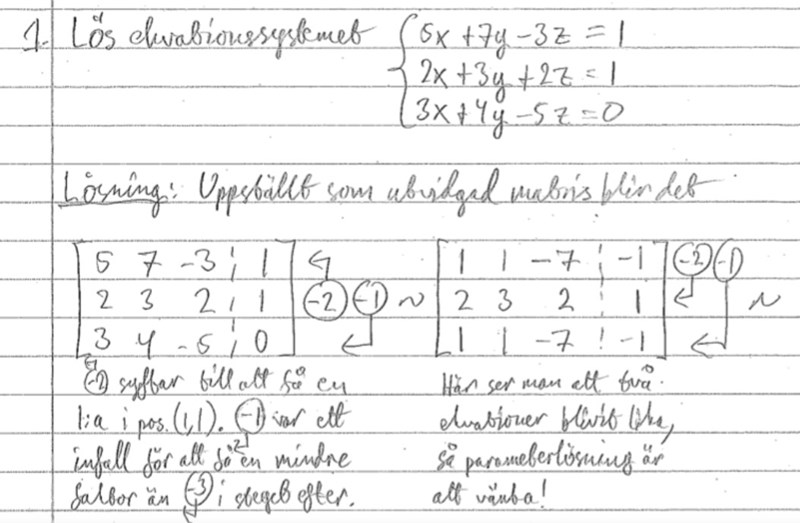 1. Lös ekvationssystemet { 5x + 7y - 3z = 1
2x + 3y + 2z = 1
3x + 4y - 5z = 0
Lösning: Uppställt som utvidgad matris blir det
[ 5 7 -3 ¦ 1 ] [ 1 1 -7 ¦ -1 ] (-2) (-1)
[ 2 3 2 ¦ 1 ] (-2) (-1) ~ [ 2 3 2 ¦ 1 ] ~
[ 3 4 -5 ¦ 0 ] [ 1 1 -7 ¦ -1 ]
(-2) syftar till att få en
1:a i pos. (1,1). (-1) var ett
infall för att få en mindre
faktor än (-3) i steget efter.
Här ser man att två
ekvationer blivit lika,
så parameterlösning är
att vänta!